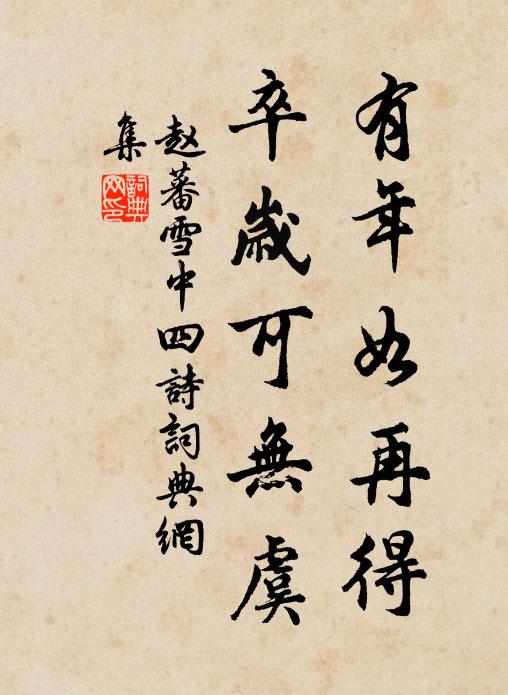 有年如再得
卒歲可無虞
赵蕃雪中四詩詞典網
集
詞典
网印